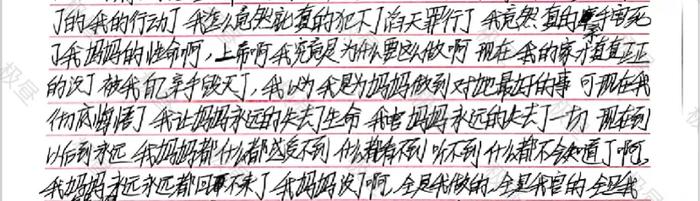 了的我的行动了 我怎么竟然就真的犯下了滔天罪行了 我竟然真的亲手害死
了我妈妈的性命啊,上帝啊我究竟是为什么要这么做啊 现在我的家才真真正正
的没了 被我自己亲手毁灭了,我以为我是为妈妈做到对她最好的事 可现在我
彻底悔悟了 我让妈妈永远的失去了生命 我害妈妈永远的失去了一切 现在到
以后到永远 我妈妈都什么都感受不到 什么看不到 听不到 什么都不会知道了啊,
我妈妈永远永远都回不来了 我妈妈没了啊,全是我做的,全是我害的 全是我
极昼